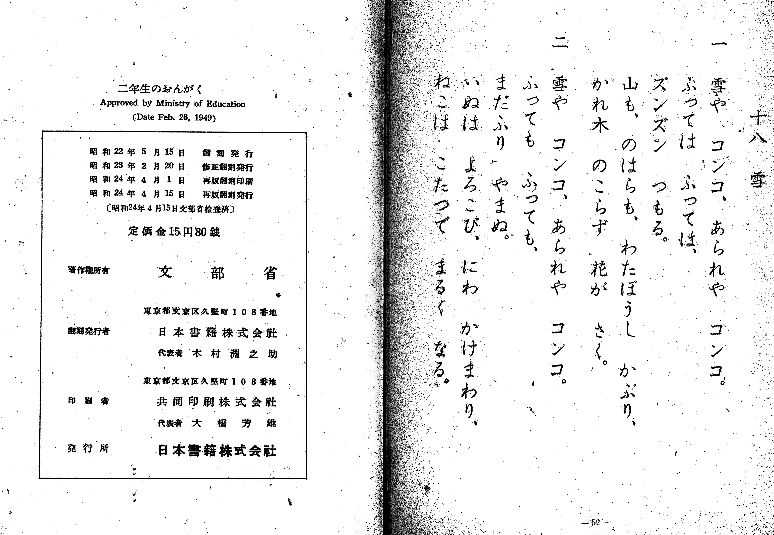 十八 雪
一 雪や コンコ、あられや コンコ。
ふっては ふっては、
ズンズン つもる。
山も、のはらも、わたぼうし かぶり、
かれ木 のこらず 花が さく。
二 雪や コンコ、あられや コンコ。
ふっても ふっても、
まだふり やまぬ。
いぬは よろこび、にわ かけまわり、
ねこは こたつで まるく なる。
二年生のおんがく
Approved by Ministry of Education
(Date Feb. 28, 1949)
昭和22年5月15日 翻刻発行
昭和23年2月20日 修正翻刻発行
昭和24年4月1日 再版翻刻印刷
昭和24年4月15日 再版翻刻発行
〔昭和24年4月15日文部省検査済〕
定価金15円80銭
著作権所有 文部省
東京都文京区久堅町108番地
翻刻発行者 日本書籍株式会社
代表者 木村 之助
東京都文京区久堅町108番地
印刷者 共同印刷株式会社
代表者 大橋芳雄
発行所 日本書籍株式会社